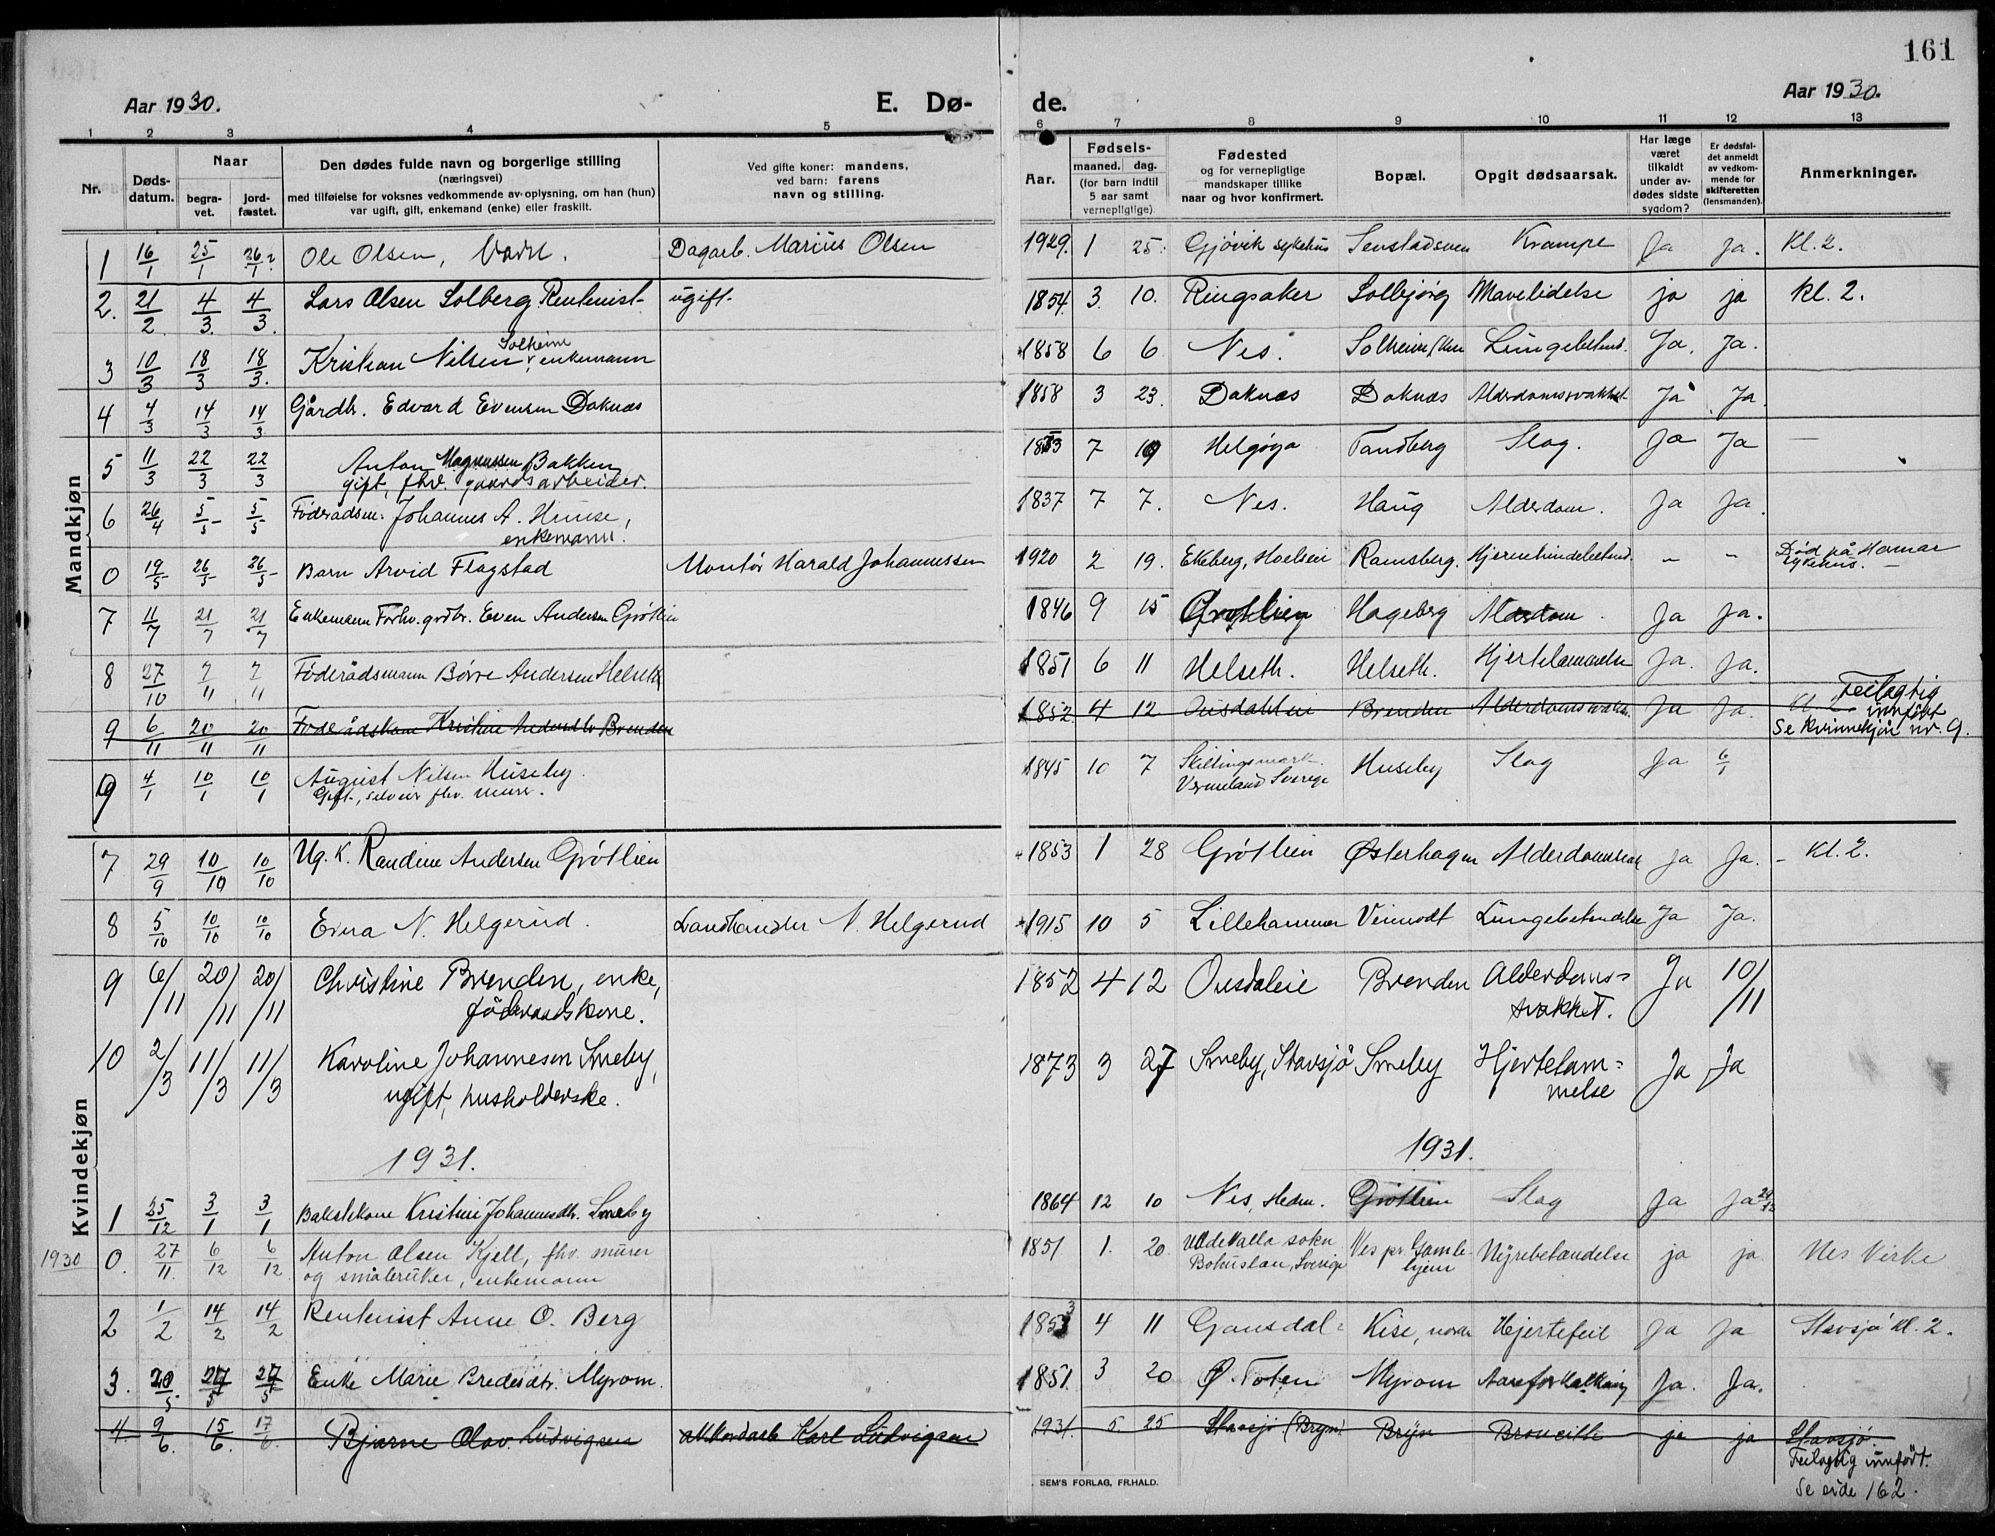 161
Aar 1930.
E. Dø-
de.
Aar 1930.
1 2 3 4 5 6 7 8 9 10 11 12 13
Nr.
Døds-
datum.
Naar
begra-
vet.
jord-
fæstet.
Den dødes fulde navn og borgerlige stilling
(næringsvei)
med tilføielse for voksnes vedkommende av oplysning, om han (hun)
var ugift, gift, enkemand (enke) eller fraskilt.
Ved gifte koner: mandens,
ved barn: farens
navn og stilling.
Aar.
Fødsels-
maaned. dag.
(for barn indtil
5 aar samt
vernepligtige)
Fødested
og for vernepligtige
mandskaper tillike
naar og hvor konfirmert.
Bopæl.
Opgit dødsaarsak.
Har læge
været
tilkaldt
under av-
dødes sidste
sygdom?
Er dødsfal-
det anmeldt
av vedkom-
mende for
skifteretten
(lensmanden).
Anmerkninger.
Mandkjøn
1 16/1 25/1 26/1? Ole Olsen, Barn. Dagarb. Marius Olsen 1929. 1 25. Gjøvik sykehus Krampe Ja Ja. Kl. 2.
2. 21/2 4/3 4/3 Lars Olsen Solberg Rentenist ugift. 1854. 3. 10. Ringsaker Solbjørg Mavelidelse ja ja Kl. 2.
3 10/3 18/3 18/3 Kristian Nilsen Solheim, enkemann 1858 6 6 Nes. Solheim Lungebetend. Ja. Ja.
4 4/3 14/3 14/3 Gårdbr. Edvard Evensen Doknæs 1858 3 23. Doknæs Doknæs Alderdomssvakhet Ja Ja.
5 11/3 22/3 22/3 Anton Magnussen Bakken
gift, fhv. gaardsarbeider. 7 Helgøya Tandberg Slag. Ja Ja —
6 26/4 5/5 5/5 Føderådsm. Johannes A. Hemse,
enkemann. 1837 7 7. Nes. Haug Alderdom. Ja Ja.
0 19/5 26/5 26/5 Barn Arvid Flagstad Montør Harald Johannessen 1920 2 19. Ekeberg, Ramsberg. Hjernehindebetend. – – Død på Hamar
sykehus. —
7 11/7 21/7 21/7 Enkemann Forhv. grdbr. Even Andersen Grøtlien 1846 9 15 Grøtlien Hageberg Alderdom. Ja Ja.
8 27/10 7/11 7/11 Føderådsmann Børre Andersen Helseth 1851 6 11 Helseth. Helseth. Hjertelammelse Ja. Ja.
9 6/11 20/11 20/11 Føderådskone Kristine Andersdtr Brenden 1852 4 12 Ousdahlen Brenden Alderdomssvakh. Ja Ja. Kl. 2 Feilagtig
innført
Se kvinnekjøn nr. 9.
9 4/1 10/1 10/1 August Nilsen Huseby.
Gift, selveier fhv. murer. 1845 10 7 Skillingsmark
Vermeland Sverige Huseby Slag Ja 6/1
Kvindekjøn
7 29/9 10/10 10/10 Ug. K. Randine Andersen Grøtlien 1853 1 28 Grøtlien Østerhagen Ja Ja. – Kl. 2.
8 5/10 10/10 10/10 Erna N. Helgerud. Landhandler N. Helgerud 1915 10 5 Lillehammer Veimodt Lungebetendelse Ja Ja.
9 6/11 20/11 20/11 Christine Brenden, enke,
føderaadskone. 1852 4 12 Ousdalie Brenden Alderdoms=
svakket. Ja 10/11
10 2/3 11/3 11/3 Karoline Johannesen Smeby,
ugift, husholderske. 1873 3 27 Smeby, Stavsjø Smeby Hjertelam=
melse Ja Ja
1931. 1931.
1 25/12 3/1 3/1 Kristine Johannesdtr. Smeby 1864 12 10 Nes, Hedm. Grøtlien Slag Ja Ja
1930 0. 27/11. 6/12 6/12 Anton Olsen Kjell, fhv. murer
og småbruker, enkemann 1851 1. 20. Uddevalla sokn
Bohuslan, Sverige Nes pr. Gamle-
hjem Nyrebetændelse ja ja Nes Virke
2 1/2 14/2 14/2 Rentenist Anne O. Berg 1853 4 11 Gausdal Kise, Hjertefeil Ja Ja Stavsjø kl. 2.
3. 20/5. 27/5 27/5 Enke Marie Bredesdtr. Myrom. 1851. 3 20 Ø. Toten Myrom Aareforkalkning Ja. Ja.
4. 9/6. 15/6. 17/6 Bjarne Olav Ludvigsen Akkordarb Karl Ludvigsen 1931. 5. 25 Stavsjø (Bryn) Bryn ja ja Stavsjø.
Feilagtig innført.
Se side 162.
SEM'S FORLAG, FR.HALD.